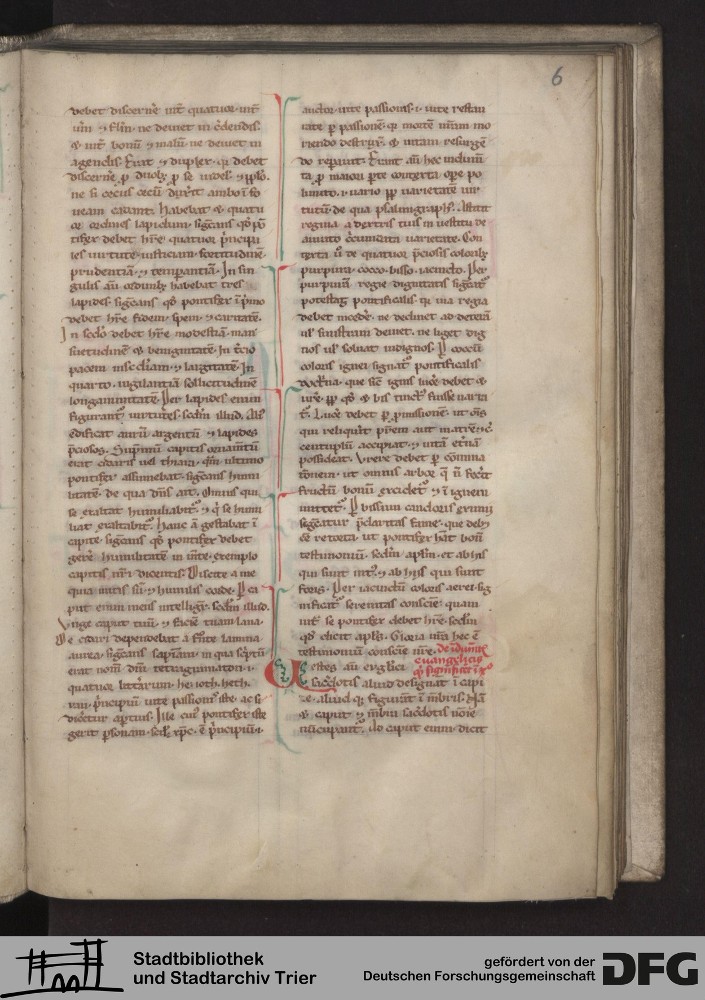 6
debet discerne int quatuor. int
uim ⁊ fim. ne deuiet in cdendis.
⁊ int bonū ⁊ malū. ne deuiet in
agendis. Erat ⁊ duplex. qr debet
discerne p duob. p se uidel. ⁊ pplo.
ne si cecus cecū duxit ambo ī fo
ueam cadant. Habebat ⁊ quatu
or ordines lapidum. signans qd pō
tifex debet hre quatuor pncipa
les uirtutes. iusticiam. fortitudinē
prudentiā. ⁊ temperantiā. In sin
gulis aū ordinib habebat tres
lapides. signans qd pontifex ī pmo
debet hre fidem. spem. ⁊ caritatē.
In scdo debet hre modestiā. man
suetudinē ⁊ benignitatē. In tcio
pacem misediam. ⁊ largitatē. In
quarto. uigilantiā sollicitudinē
longanimitatē. Per lapides enim
figurant uirtutes. scdm illud. Alī
edificat aurū argentū ⁊ lapides
pciosos. Supmū capitis ornamtū
erat cidaris uel thiara. qm ultimo
pontifex assumebat. signans humi
litatē. de qua dns ait. Omnis qui
se exaltat humiliabit. ⁊ q se humi
liat exaltabit. Hanc ā gestabat ī
capite. signans qd pontifex debet
gere humilitatem in mte. exemplo
capitis nri dicentis. Discite a me
quia mitis sū ⁊ humilis corde. P ca
put enim mens intelligit. scdm illud.
Unge caput tuū. ⁊ faciē tuam laua.
De cidari dependebat a fnte lamina
aurea. signans sapīam. in qua scptū
erat nomē dni tetragramaton. ī
quatuor litterarum. he. ioth. heth.
uau. pncipiū uite passionis iste. ac si
dicetur aptius. Iste cuius pontifex iste
gerit psonam. scil. xpc. ē pncipiū. ī.
auctor. uite passionis. ī. uite restau
rate p passionē. qr mortē nram mo
riendo destruxit. ⁊ uitam resurgē
do reparuit. Erant aū hec indumī
ta p maiori pte contexta ope po
limito. ī. uario pp uarietatē uir
tutū. de qua psalmigraph. Astitit
regina a dextris tuis in uestitu de
aurato ccumdata uarietate. Con
texta ū de quatuor pciosis colorib.
purpura. cocco. bisso. iacincto. Per
purpurā regie dignitatis signat
potestas pontificalis. qr uia regia
debet incede. ne declinet ad dexterā
ul sinistram deuiet. ne liget dig
nos ul soluat indignos. P coccū
coloris ignei signat pontificalis
doctrina. que sicut ignis luce debet ⁊
ure. pp qd ⁊ bis tinct fuisse narra
t. Luce debet p pmissionē. ut oīs
qui reliqrit prem aut matrē ⁊c.
centuplū accipiat. ⁊ uitā etnā
possideat. Urere debet p comma
tōnem. ut omnis arbor q n facit
fructū bonū excidet ⁊ ī ignem
mittet. P bissum candoris eximii
signatur pclaritas fame. que deb
se retexta. ut pontifex hāt bonū
testimoniū. scdm aplm. et ab his
qui sunt int. ⁊ ab hijs qui sunt
foris. Per iacinctū coloris aerei. sig
nificat serenitas consciē. quam
int se pontifex debet hre. scdm
qd dicit apls. Gloria nra hec ē
testimonium consciē nre. de indumtis
euangelicis
q significent xp
Uestes aū euglici
sacdotis aliud designāt ī capi
te. aliud qr figurant ī mbris. Nā
⁊ caput ⁊ mbra sacdotis noīe
nuncupant. Ad caput enim dicit
Stadtbibliothek
und Stadtarchiv Trier
gefördert von der
Deutschen Forschungsgemeinschaft
DFG